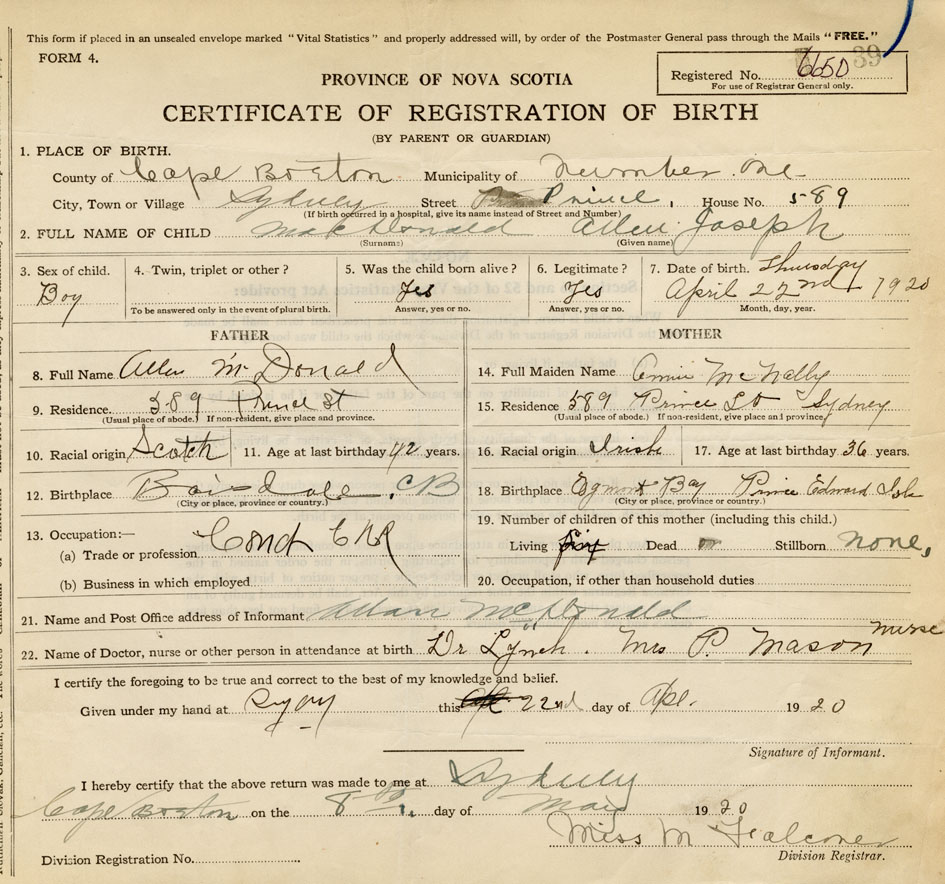 This form if placed in an unsealed envelope marked "Vital Statistics" and properly addressed will, by order of the Postmaster General pass through the Mails "FREE."
FORM 4.
39
Registered No. 6650
For use of Registrar General only.
PROVINCE OF NOVA SCOTIA
CERTIFICATE OF REGISTRATION OF BIRTH
(BY PARENT OR GUARDIAN)
1. PLACE OF BIRTH.
County of Cape Breton Municipality of Number One
City, Town or Village Sydney Street Prince, House No. 589
(If birth occurred in a hospital, give its name instead of Street and Number)
2. FULL NAME OF CHILD MacDonald Allen Joseph
(Surname) (Given name)
3. Sex of child. 4. Twin, triplet or other? 5. Was the child born alive? 6. Legitimate? 7. Date of birth. Thursday
Boy Yes Yes April 22nd 1920
To be answered only in the event of plural birth. Answer, yes or no. Answer, yes or no. Month, day, year.
FATHER MOTHER
8. Full Name Allan McDonald 14. Full Maiden Name Annie McNally
9. Residence. 589 Prince St 15. Residence 589 Prince St Sydney
(Usual place of abode.) If non-resident, give place and province. (Usual place of abode.) If non-resident, give place and province
10. Racial origin Scotch 11. Age at last birthday 42 years. 16. Racial origin Irish 17. Age at last birthday 36 years.
12. Birthplace Boisdale, CB 18. Birthplace Egmont Bay Prince Edward Isle
(City or place, province or country.) (City or place, province or country.)
13. Occupation:— 19. Number of children of this mother (including this child.)
(a) Trade or profession Cond Living Dead Stillborn none,
(b) Business in which employed 20. Occupation, if other than household duties
21. Name and Post Office address of Informant Allan McDonald
22. Name of Doctor, nurse or other person in attendance at birth Dr Lynch. Mrs P. Mason nurse
I certify the foregoing to be true and correct to the best of my knowledge and belief.
Given under my hand at this 22nd day of Apl. 1920
Signature of Informant.
I hereby certify that the above return was made to me at Sydney
Cape Breton on the 8th day of May 1920
Miss M Falconer
Division Registration No. Division Registrar.